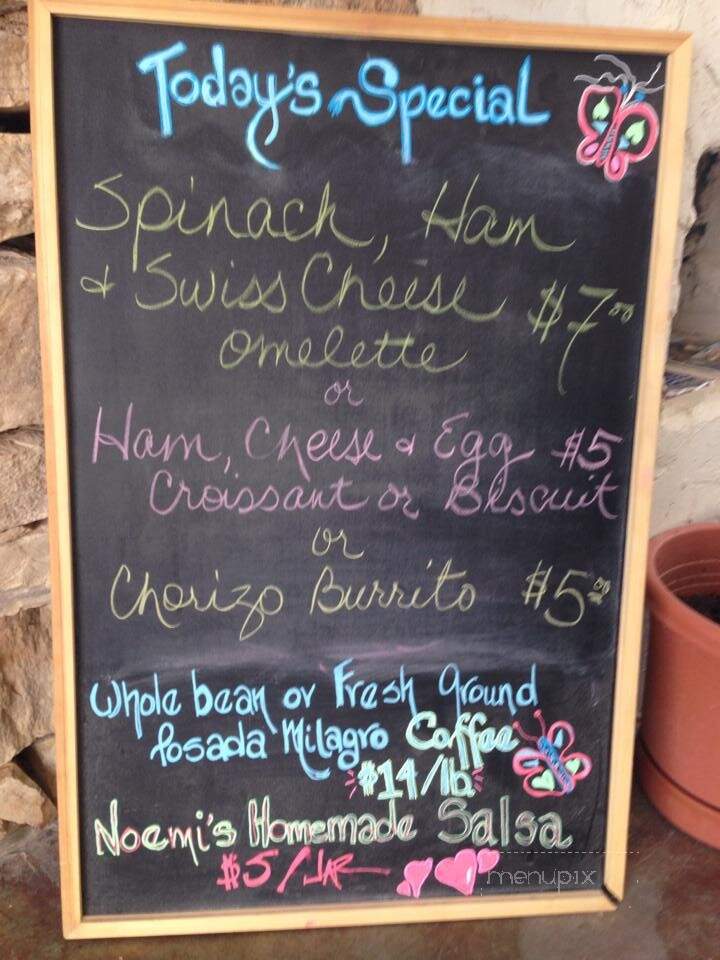 Today's Special
Spinach, Ham
& Swiss Cheese $7.00
Omelette
or
Ham, Cheese & Egg $5
Croissant or Biscuit
or
Chorizo Burrito $5.00
Whole bean or Fresh Ground
Posada Milagro Coffee
$14/lb
Noemi's Homemade Salsa
$5/JAR
menupix